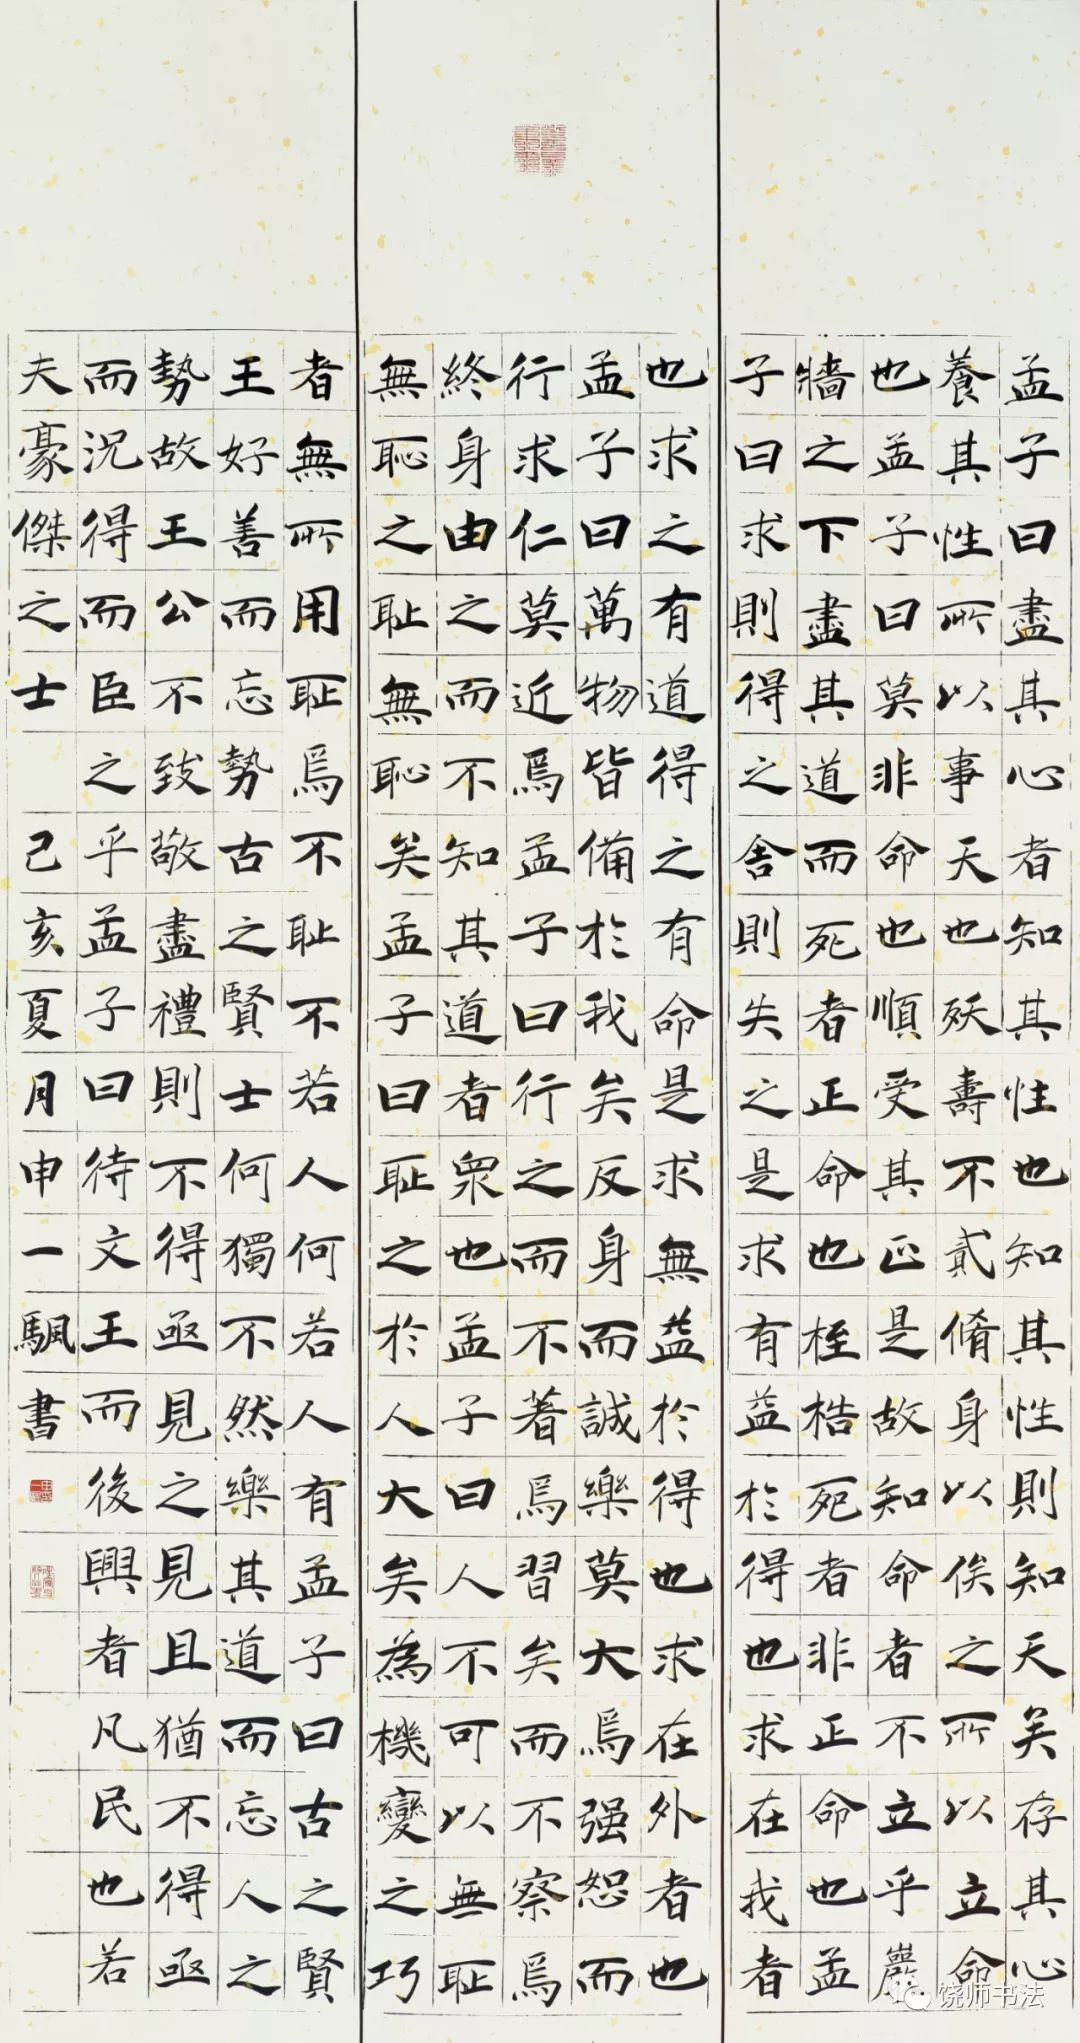 孟子曰盡其心者知其性也知其性則知天矣存其心
養其性所以事天也殀壽不貳脩身以俟之所以立命
也孟子曰莫非命也順受其正是故知命者不立乎巖
牆之下盡其道而死者正命也桎梏死者非正命也孟
子曰求則得之舍則失之是求有益於得也求在我者
也求之有道得之有命是求無益於得也求在外者也
孟子曰萬物皆備於我矣反身而誠樂莫大焉强恕而
行求仁莫近焉孟子曰行之而不著焉習矣而不察焉
終身由之而不知其道者衆也孟子曰人不可以無耻
無恥之耻無恥矣孟子曰耻之於人大矣為機變之巧
者無所用耻焉不耻不若人何若人有孟子曰古之賢
王好善而忘勢古之賢士何獨不然樂其道而忘人之
勢故王公不致敬盡禮則不得亟見之見且猶不得亟
而況得而臣之乎孟子曰待文王而後興者凡民也若
夫豪傑之士 己亥夏月申一颿書
饶师书法